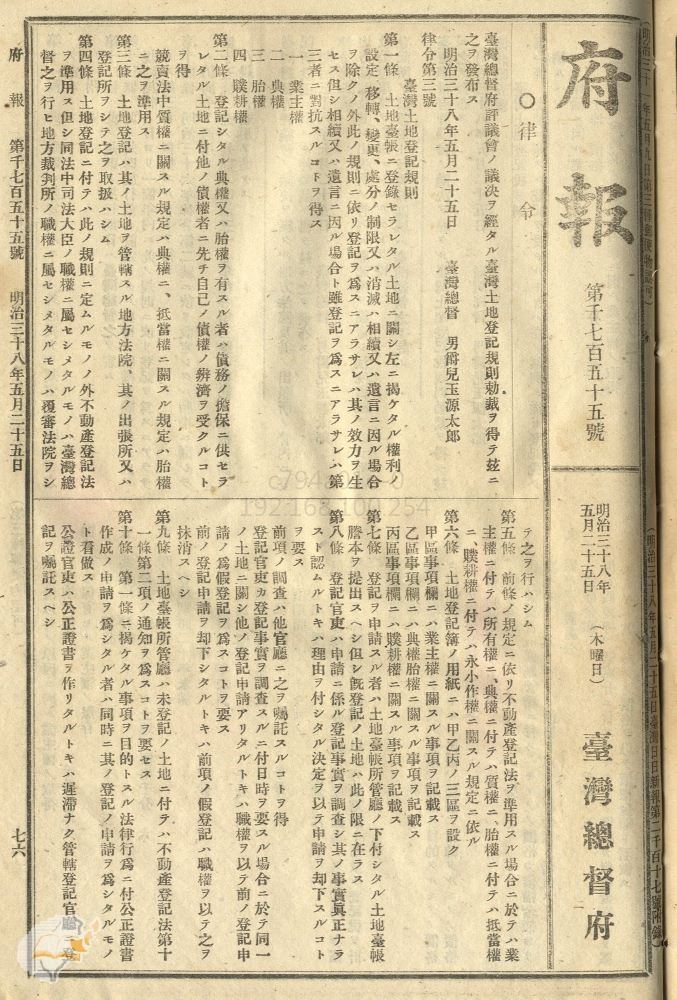 府報
第千七百五十五號
明治三十八年
五月二十五日
(木曜日)
臺灣總督府
〇律令
臺灣總督府評議會ノ議決ヲ經タル臺灣土地登記規則勅裁ヲ得テ玆ニ
之ヲ發布ス
明治三十八年五月二十五日 臺灣總督 男爵兒玉源太郎
律令第三號
臺灣土地登記規則
第一條 土地臺帳ニ登錄セラレタル土地ニ關シ左ニ揭ケタル權利ノ
設定、移轉、變更、處分ノ制限又ハ消滅ハ相續又ハ遺言ニ因ル場合
ヲ除クノ外此ノ規則ニ依リ登記ヲ爲スニアラサレハ其ノ效力ヲ生
セス但シ相續又ハ遺言ニ因ル場合ト雖登記ヲ爲スニアラサレハ第
三者ニ對抗スルコトヲ得ス
一 業主權
二 典權
三 胎權
四 贌耕權
第二條 登記シタル典權又ハ胎權ヲ有スル者ハ債務ノ擔保ニ供セラ
レタル土地ニ付他ノ債權者ニ先チ自己ノ債權ノ辨濟ヲ受クルコト
ヲ得
競賣法中質權ニ關スル規定ハ典權ニ、抵當權ニ關スル規定ハ胎權
ニ之ヲ準用ス
第三條 土地登記ハ其ノ土地ヲ管轄スル地方法院、其ノ出張所又ハ
登記所ヲシテ之ヲ取扱ハシム
第四條 土地登記ニ付テハ此ノ規則ニ定ムルモノノ外不動產登記法
ヲ準用ス但シ同法中司法大臣ノ職權ニ屬セシメタルモノハ臺灣總
督之ヲ行ヒ地方裁判所ノ職權ニ屬セシメタルモノハ覆審法院ヲシ
テ之ヲ行ハシム
第五條 前條ノ規定ニ依リ不動產登記法ヲ準用スル場合ニ於テハ業
主權ニ付テハ所有權ニ、典權ニ付テハ質權ニ、胎權ニ付テハ抵當權
ニ、贌耕權ニ付テハ永小作權ニ關スル規定ニ依ル
第六條 土地登記簿ノ用紙ニハ甲乙丙ノ三區ヲ設ク
甲區事項欄ニハ業主權ニ關スル事項ヲ記載ス
乙區事項欄ニハ典權胎權ニ關スル事項ヲ記載ス
丙區事項欄ニハ贌耕權ニ關スル事項ヲ記載ス
第七條 登記ヲ申請スル者ハ土地臺帳所管廳ノ下付シタル土地臺帳
謄本ヲ提出スヘシ但シ既登記ノ土地ハ此ノ限ニ在ラス
第八條 登記官吏ハ申請ニ係ル登記事實ヲ調査シ其ノ事實眞正ナラ
スト認ムルトキハ理由ヲ付シタル決定ヲ以テ申請ヲ却下スルコト
ヲ要ス
前項ノ調査ハ他官廳ニ之ヲ囑託スルコトヲ得
登記官吏カ登記事實ヲ調査スルニ付日時ヲ要スル場合ニ於テ同一
ノ土地ニ關シ他ノ登記申請アリタルトキハ職權ヲ以テ前ノ登記申
請ノ爲假登記ヲ爲スコトヲ要ス
前ノ登記申請ヲ却下シタルトキハ前項ノ假登記ハ職權ヲ以テ之ヲ
抹消スヘシ
第九條 土地臺帳所管廳ハ未登記ノ土地ニ付テハ不動產登記法第十
一條第二項ノ通知ヲ爲スコトヲ要セス
第十條 第一條ニ揭ケタル事項ヲ目的トスル法律行爲ニ付公正證書
作成ノ申請ヲ爲シタル者ハ同時ニ其ノ登記ノ申請ヲ爲シタルモノ
ト看做ス
公證官吏ハ公正證書ヲ作リタルトキハ遲滯ナク管轄登記官廳ニ登
記ヲ囑託スヘシ
府報 第千七百五十五號 明治三十八年五月二十五日 七六